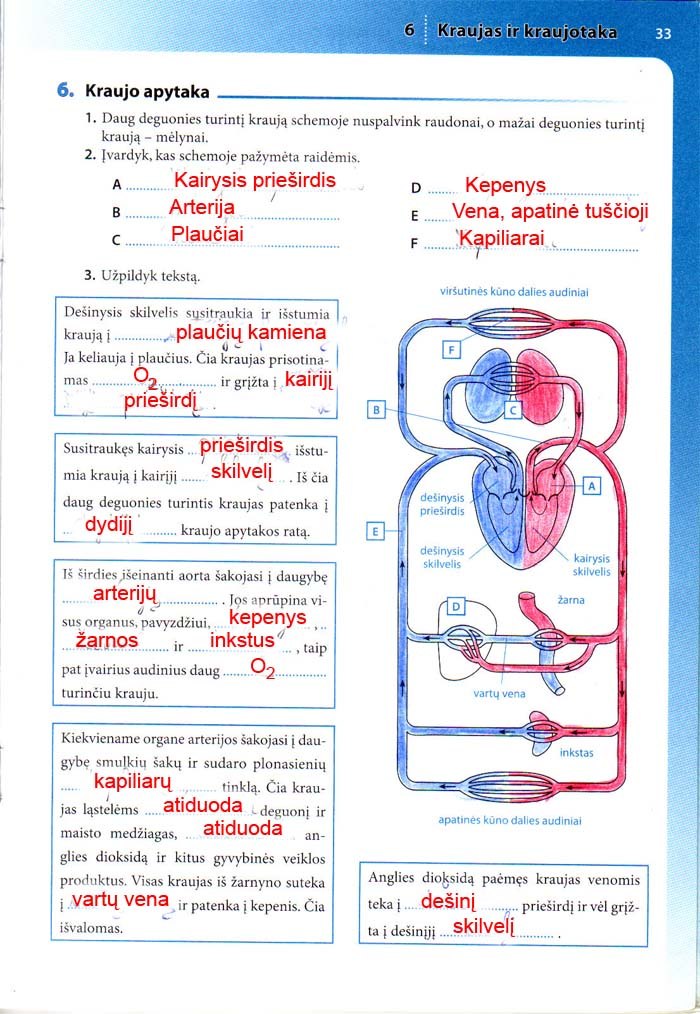 6 Kraujas ir kraujotaka 33
6. Kraujo apytaka
1. Daug deguonies turintį kraują schemoje nuspalvink raudonai, o mažai deguonies turintį
kraują – mėlynai.
2. Įvardyk, kas schemoje pažymėta raidėmis.
A Kairysis prieširdis
B Arterija
C Plaučiai
D Kepenys
E Vena, apatinė tuščioji
F Kapiliarai
3. Užpildyk tekstą.
Dešinysis skilvelis susitraukia ir išstumia
kraują į plaučių kamiena
Ja keliauja į plaučius. Čia kraujas prisotina-
mas O2 ir grįžta į kairijį
prieširdį .
Susitraukęs kairysis prieširdis išstu-
mia kraują į kairįjį skilvelį . Iš čia
daug deguonies turintis kraujas patenka į
dydijį kraujo apytakos ratą.
Iš širdies išeinanti aorta šakojasi į daugybę
arterijų . Jos aprūpina vi-
sus organus, pavyzdžiui, kepenys ,
žarnos ir inkstus , taip
pat įvairius audinius daug O2
turinčiu krauju.
Kiekviename organe arterijos šakojasi į dau-
gybę smulkių šakų ir sudaro plonasienių
kapiliarų tinklą. Čia krau-
jas ląstelėms atiduoda deguonį ir
maisto medžiagas, atiduoda an-
glies dioksidą ir kitus gyvybinės veiklos
produktus. Visas kraujas iš žarnyno suteka
į vartų vena ir patenka į kepenis. Čia
išvalomas.
viršutinės kūno dalies audiniai
F
B
C
A
dešinysis
prieširdis
E
dešinysis
skilvelis
kairysis
skilvelis
D
žarna
vartų vena
inkstas
apatinės kūno dalies audiniai
Anglies dioksidą paėmęs kraujas venomis
teka į dešinį prieširdį ir vėl grįž-
ta į dešinįjį skilvelį .